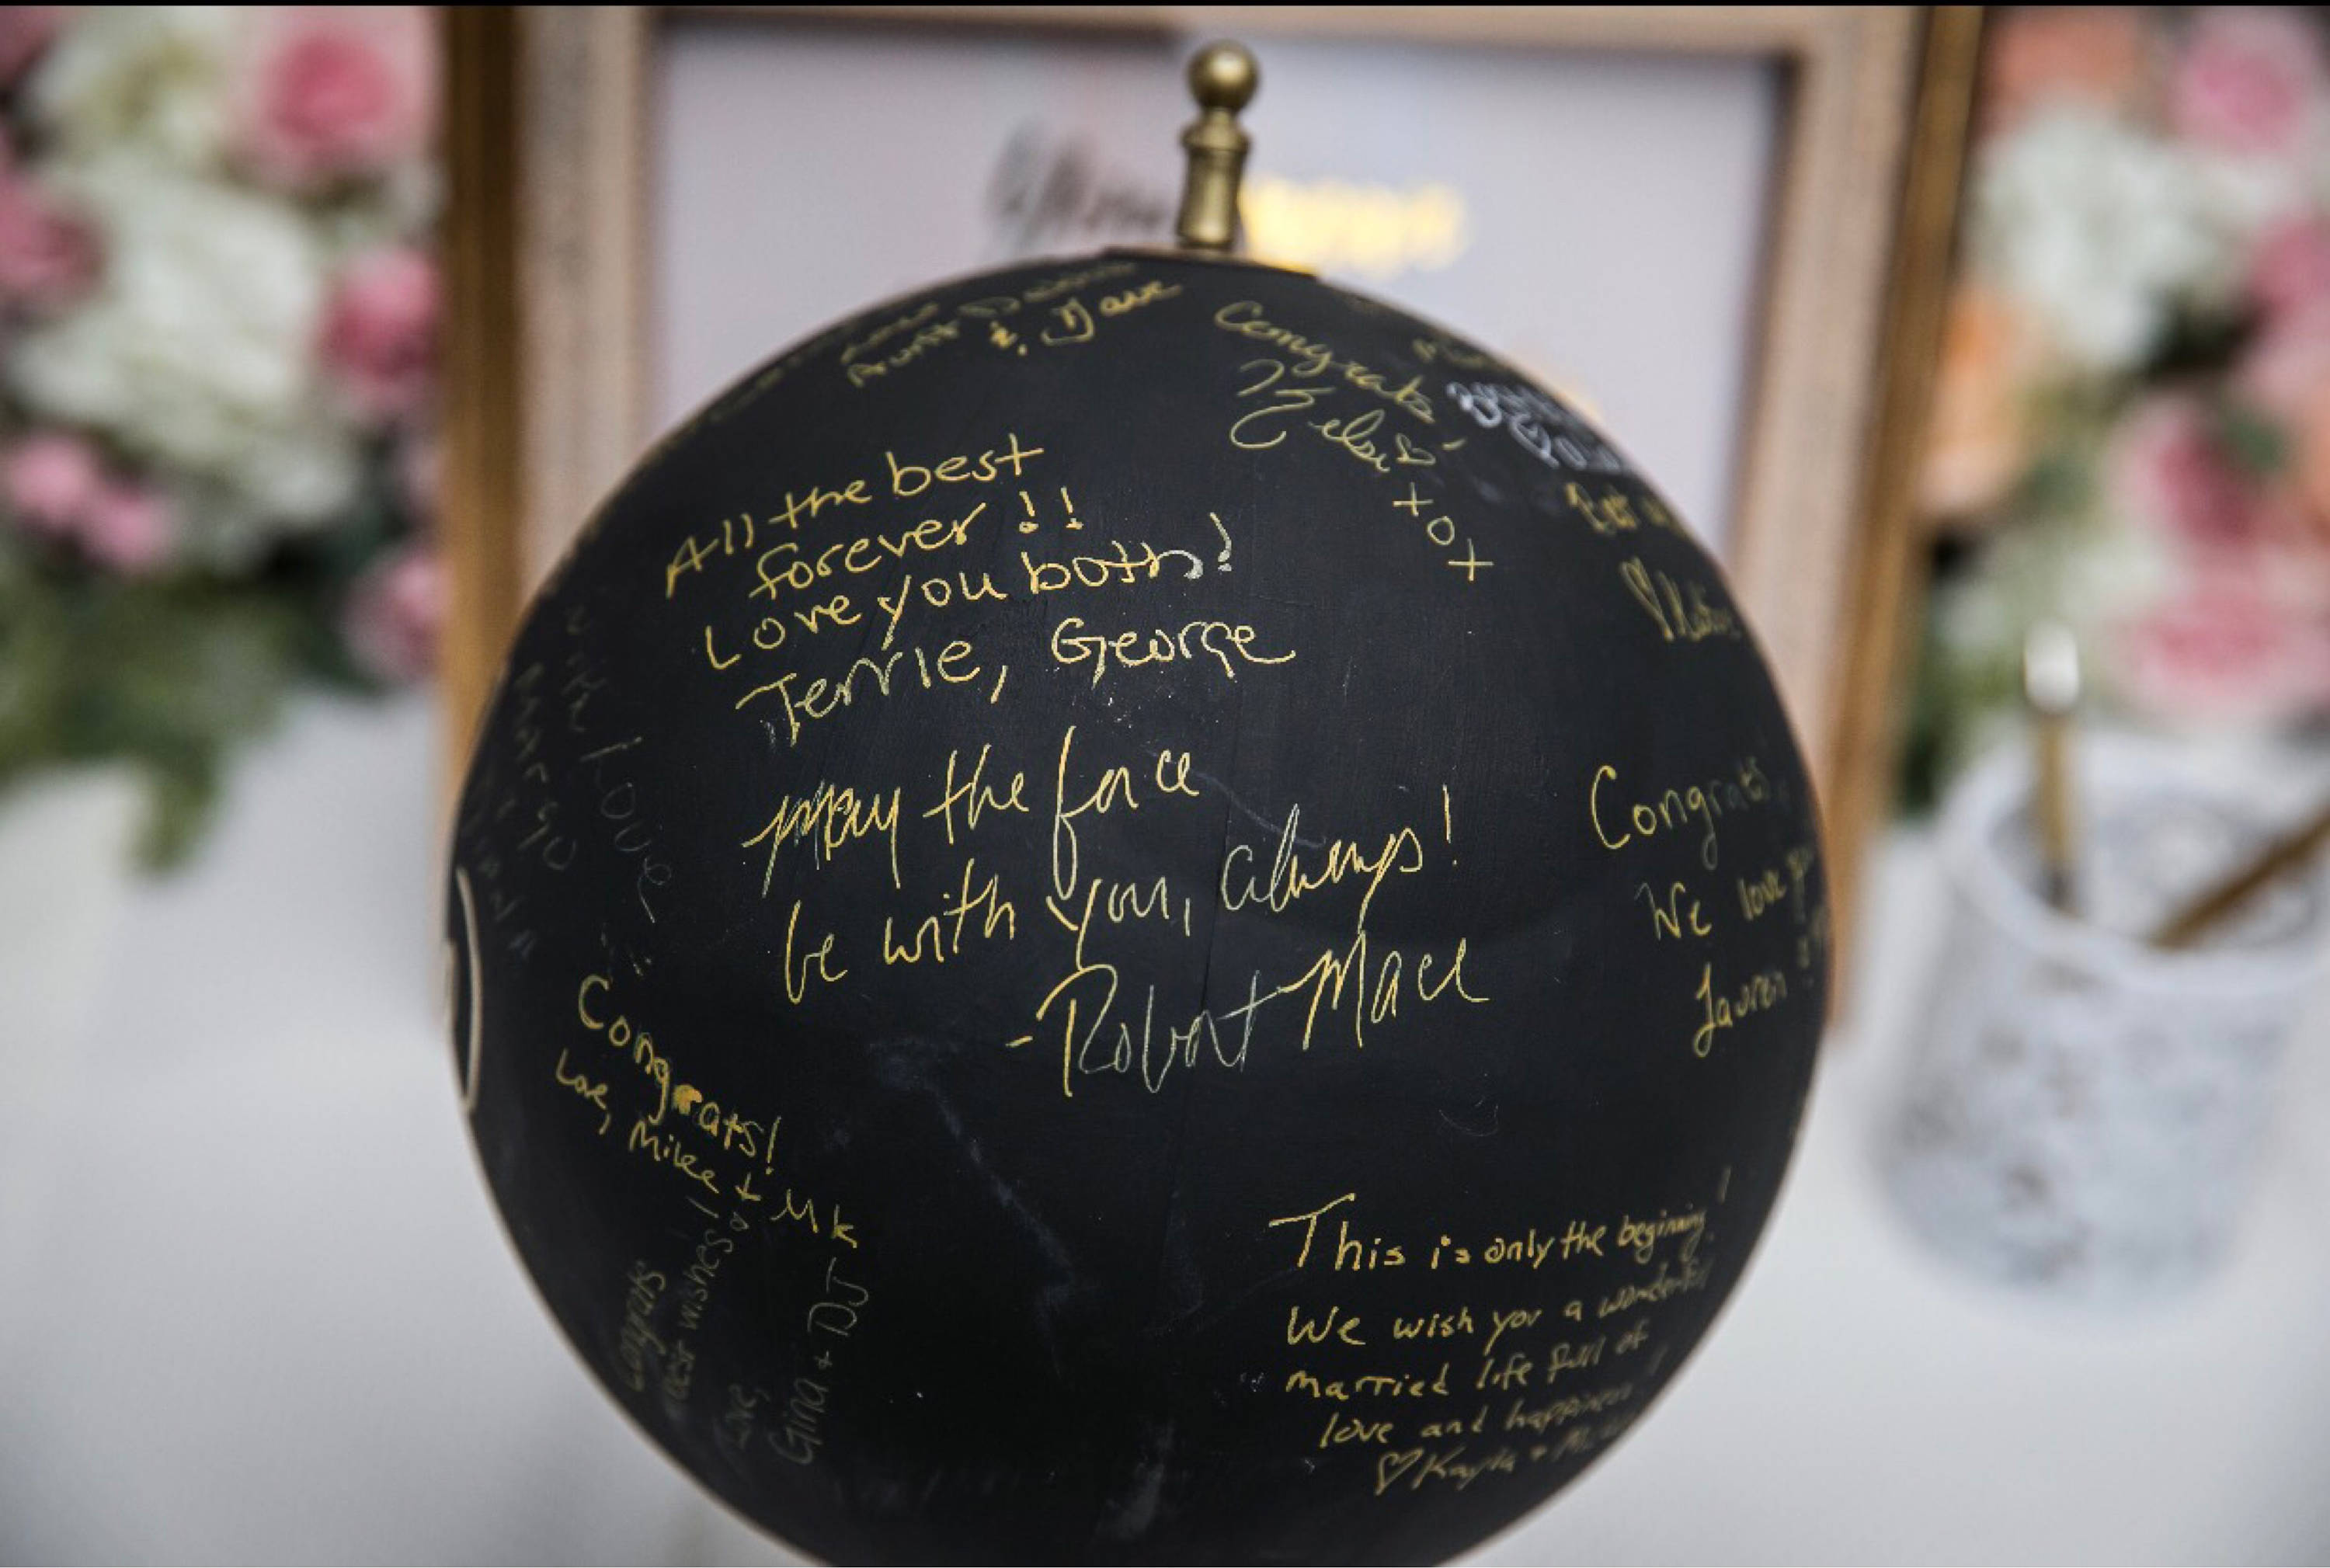 Aunt
& Dave
Congrats!
Kelsi
xox
All the best
forever!!
Love you both!
Terrie, George
May the force
be with you, always!
- Robert Mace
With Love
Margo
Congrats
We love
Lauren
Congrats!
Love, Mike + MK
Congrats
best wishes!
Love,
Gina + DJ
This is only the beginning!
We wish you a wonderful
married life full of
love and happiness!
♡ Kayla +